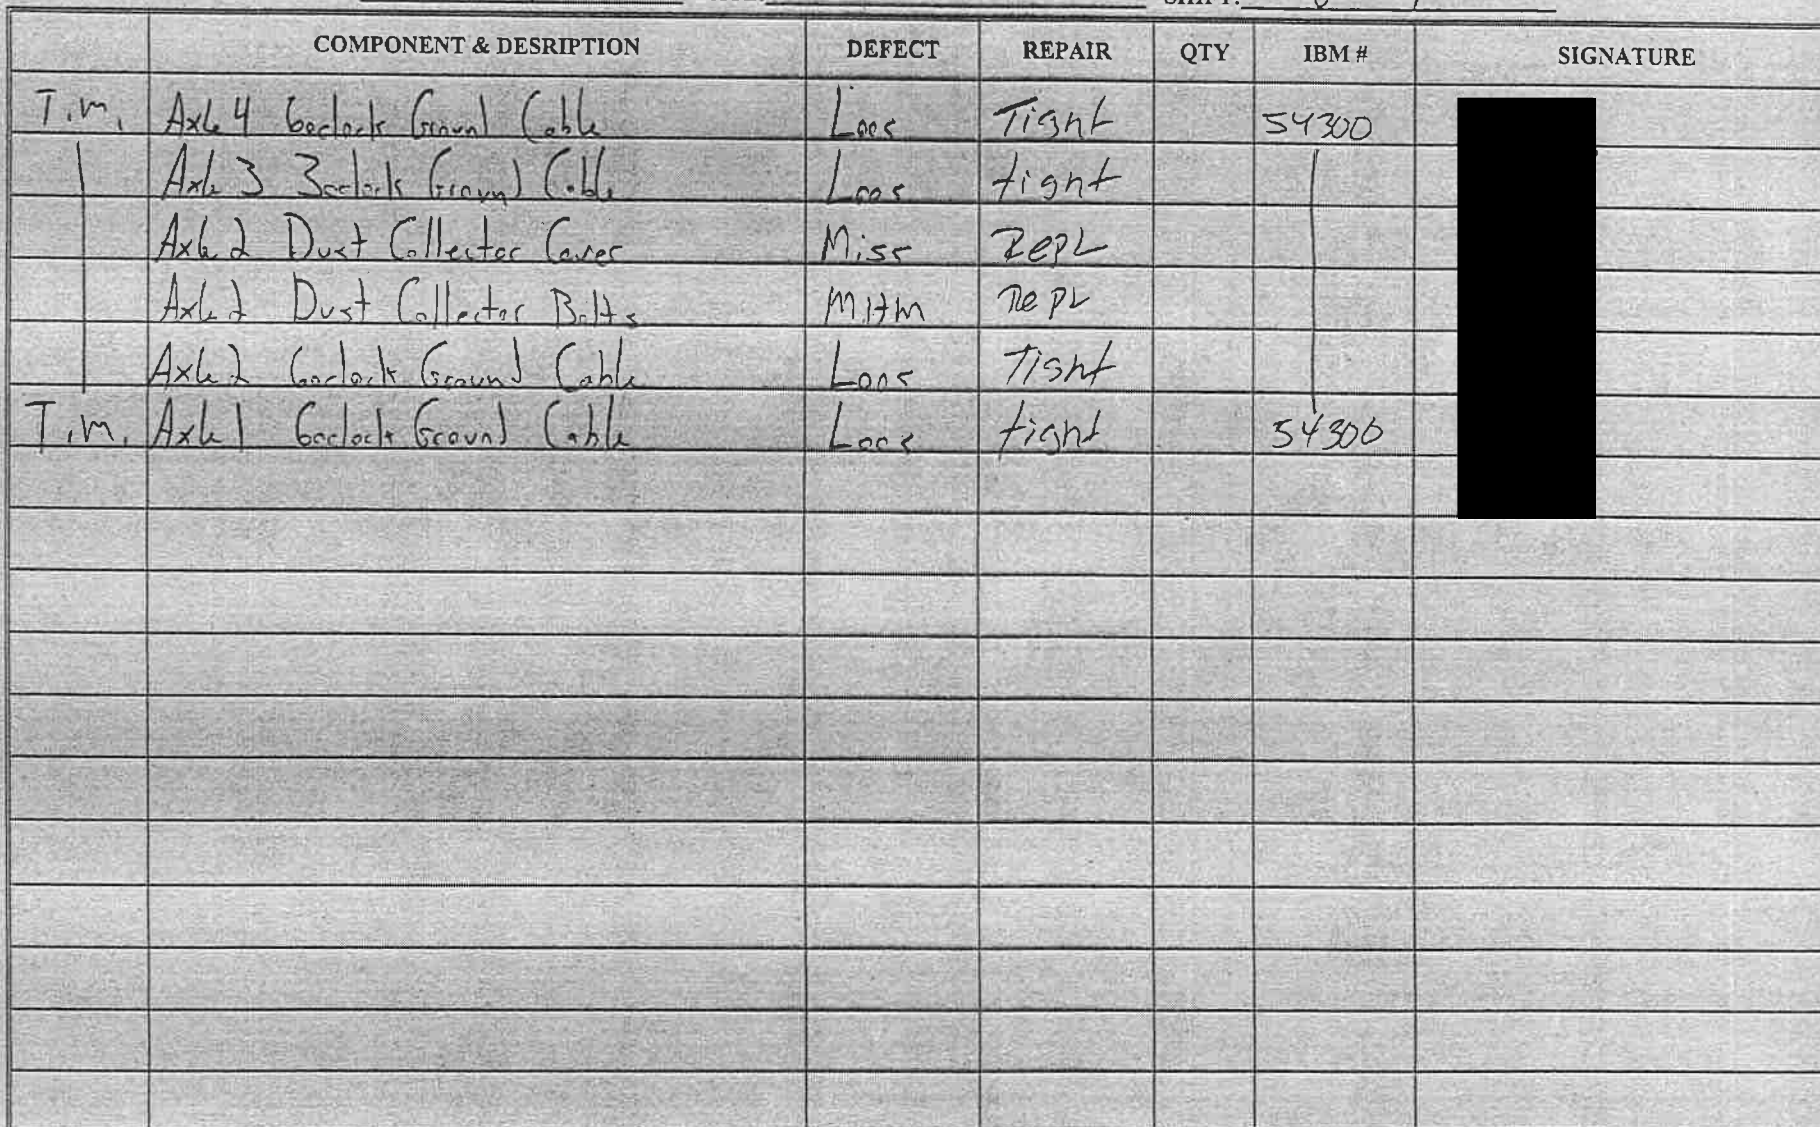 SHIFT:
COMPONENT & DESRIPTION DEFECT REPAIR QTY IBM # SIGNATURE
T.m. Axle 4 6oclock Groun Cable Loos Tight 54300
Axle 3 3oclock Ground Cable Loos tight
Axle 2 Dust Collector Cover Miss Repl
Axle 2 Dust Collector Bolts Repl
Axle 2 6oclock Ground Cable Loos Tight
T.m. Axle 1 6oclock Ground Cable Loos tight 54300